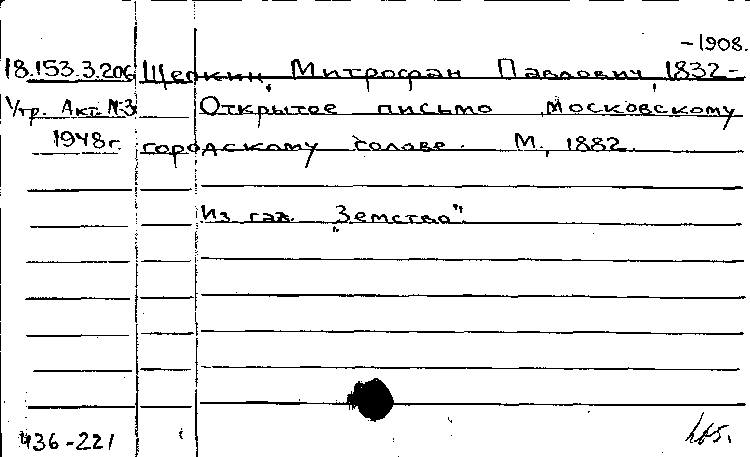 -1908.
18.153.3.206 Щепкин, Митрофан Павлович, 1832-
Утр. Акт. №3 Открытое письмо московскому
1948г. городскому голове. М., 1882.
Из газ. "Земство"
436-221